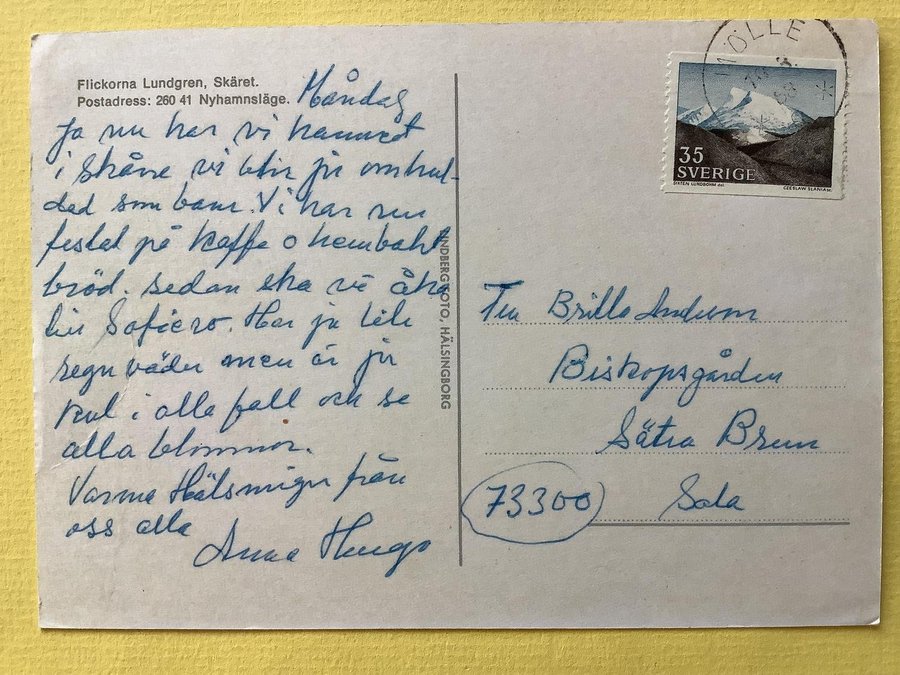 Flickorna Lundgren, Skäret.
Postadress: 260 41 Nyhamnsläge.
Måndag
Ja nu har vi hamnat
i skåne vi blir ju omhul-
ded som barn. Vi har nu
festat på kaffe o hembakt
bröd. sedan ska vi åka
till Sofiero. Har ju lite
regn väder men är ju
kul i alla fall och se
alla blommor.
Varma Hälsningar från
oss alla
Anna Hugo
LINDBERGFOTO, HÄLSINGBORG
MÖLLE
35
SVERIGE
SIXTEN LUNDBOHM del.
CZESLAW SLANIA sc.
Britta
Biskopsgården
Sätra Brunn
73300 Sala